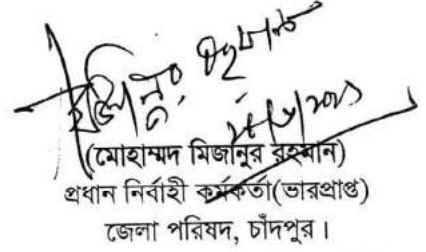 (মোহাম্মদ মিজানুর রহমান)
প্রধান নির্বাহী কর্মকর্তা(ভারপ্রাপ্ত)
জেলা পরিষদ, চাঁদপুর।